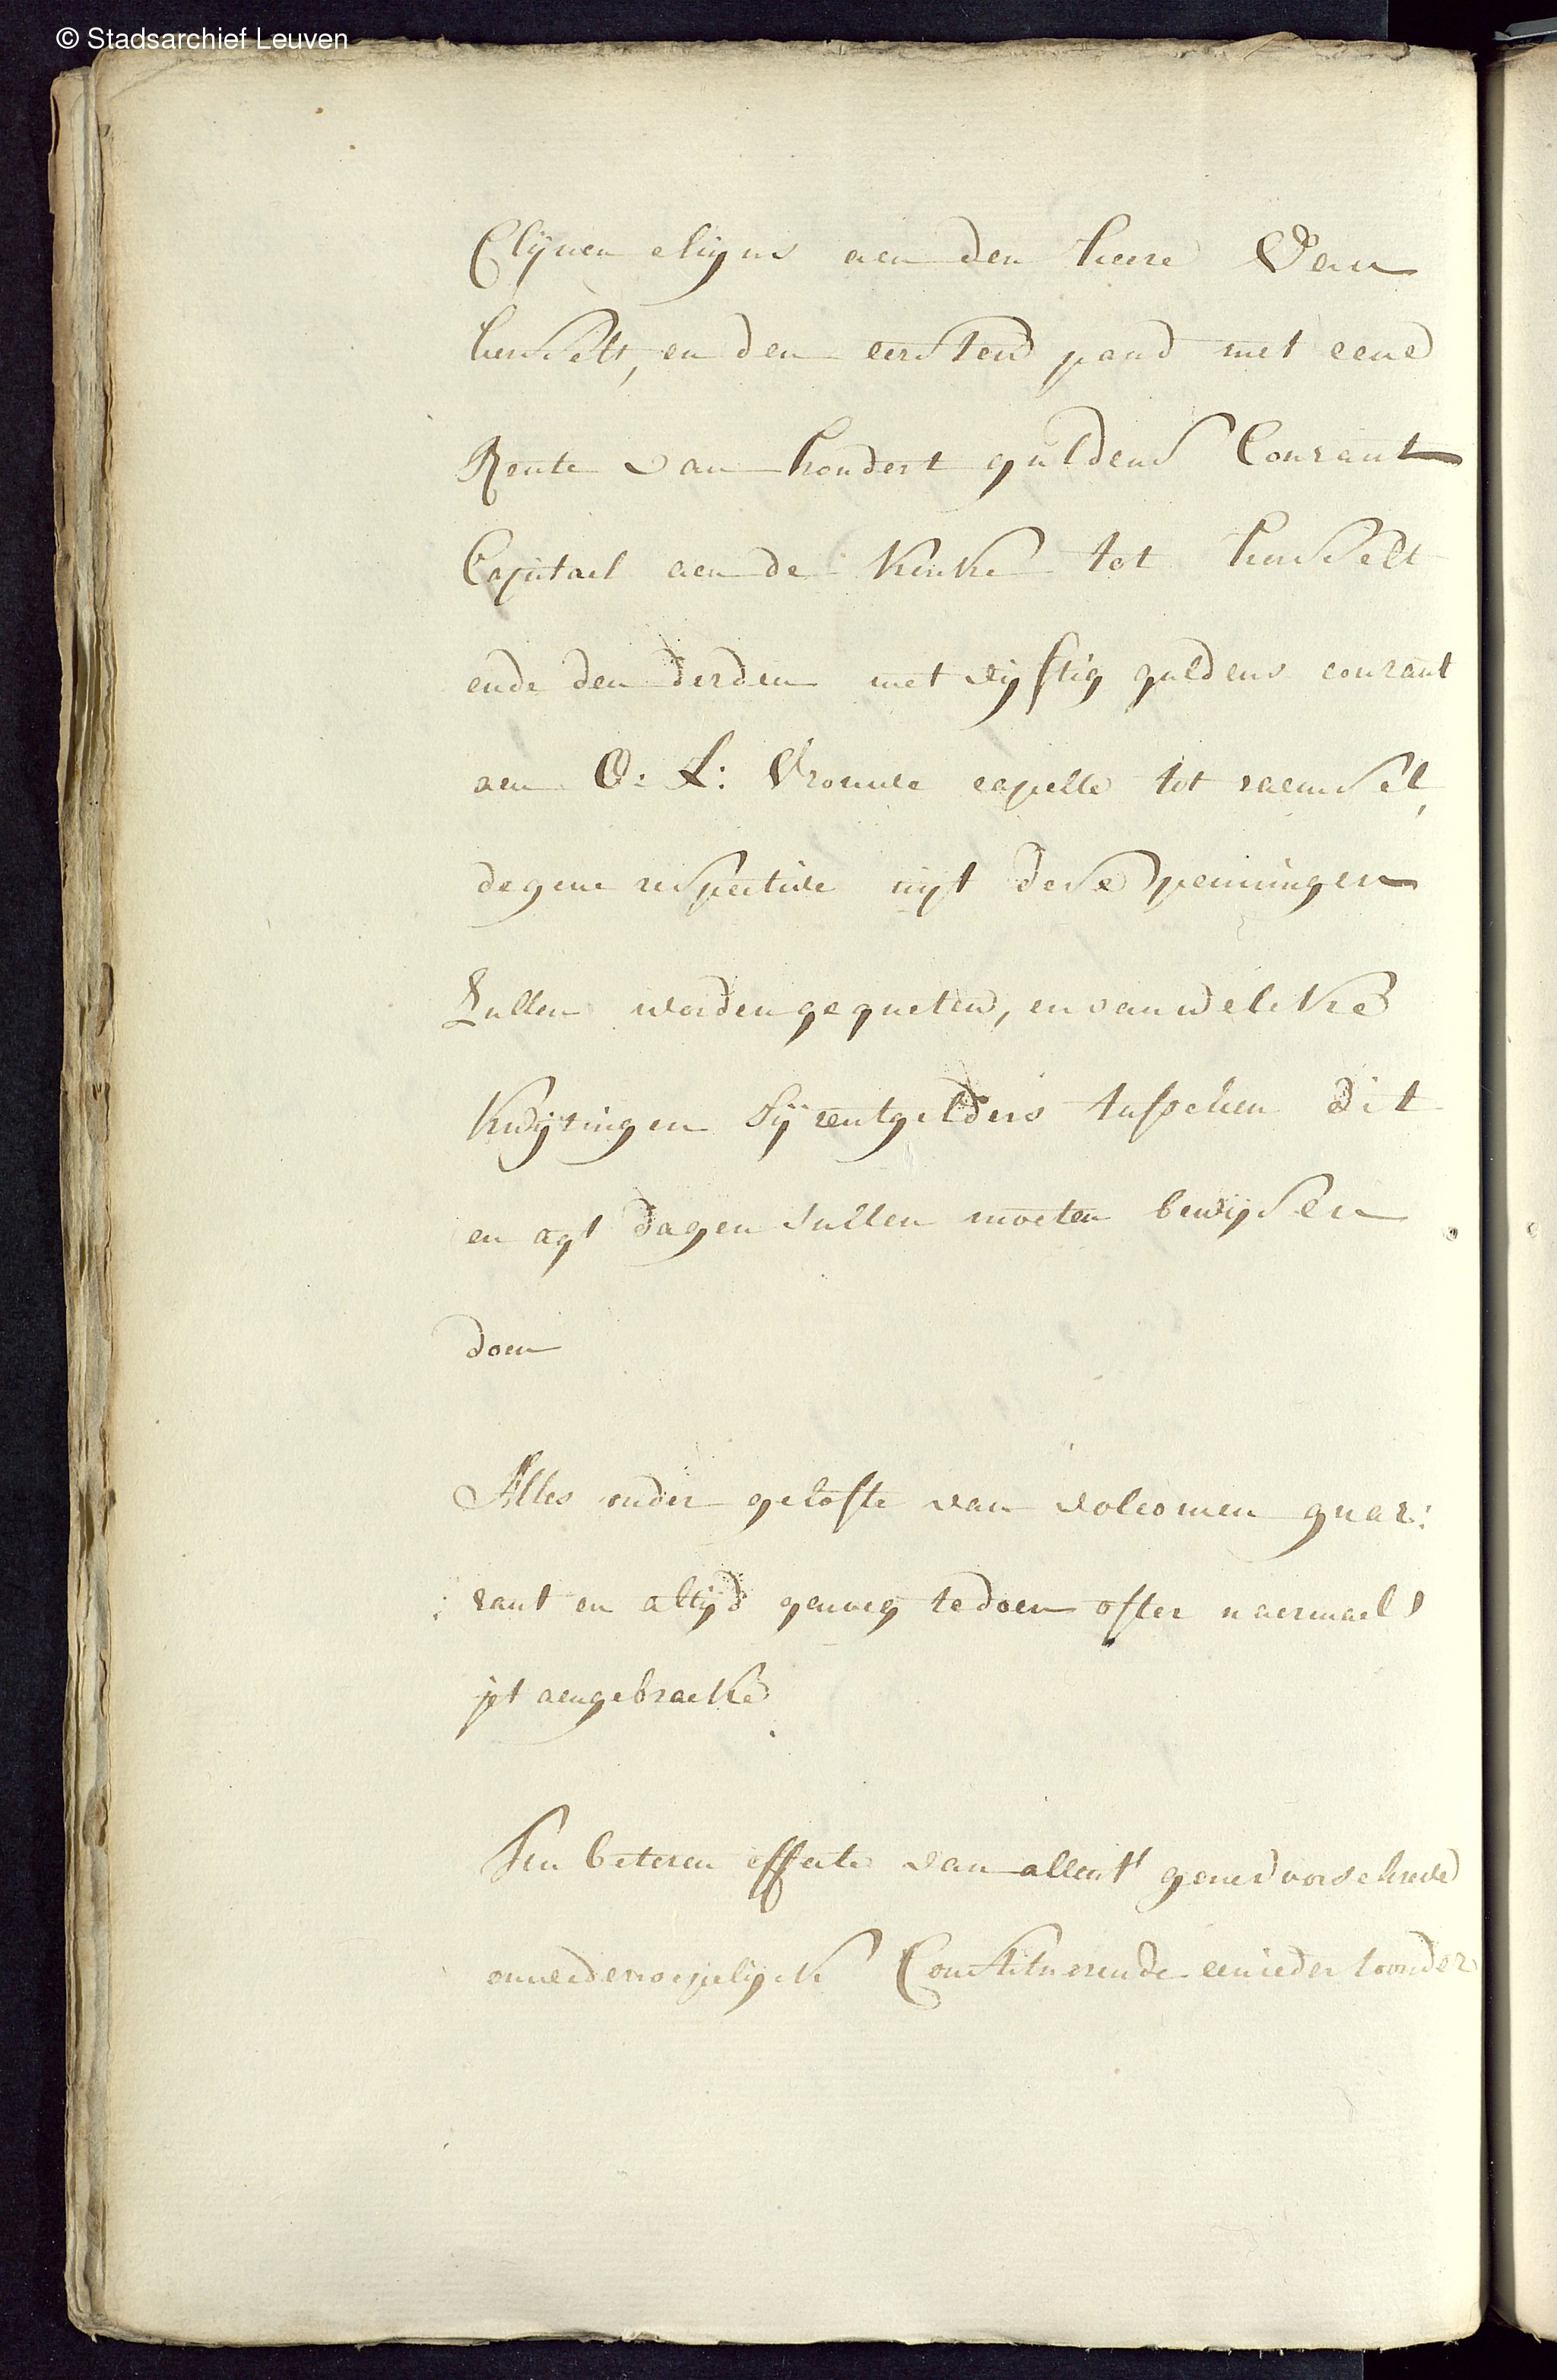 © Stadsarchief Leuven
Clijnen chijns aen den heere Van
hersselt, en den eersten pand met eene
Rente van hondert guldens Courant
Capitael aen de kerke tot hersselt
ende den derden met vijftig guldens courant
aen O: L: Vrouwe capelle tot raemsel,
degene respective uijt dese penningen
Sullen worden gequeten, en van welcke
kwijtingen sij rentgelders tusschen dit
en agt dagen sullen moeten bewijsen
doen
Alles onder gelofte van volcomen guar:
: rant en altijd genoeg te doen ofter naermaels
jet aengebraeke
Ten beteren effecte van allen 't gene voorschreve
onwederroepelijck Constituerende een ieder thoonder